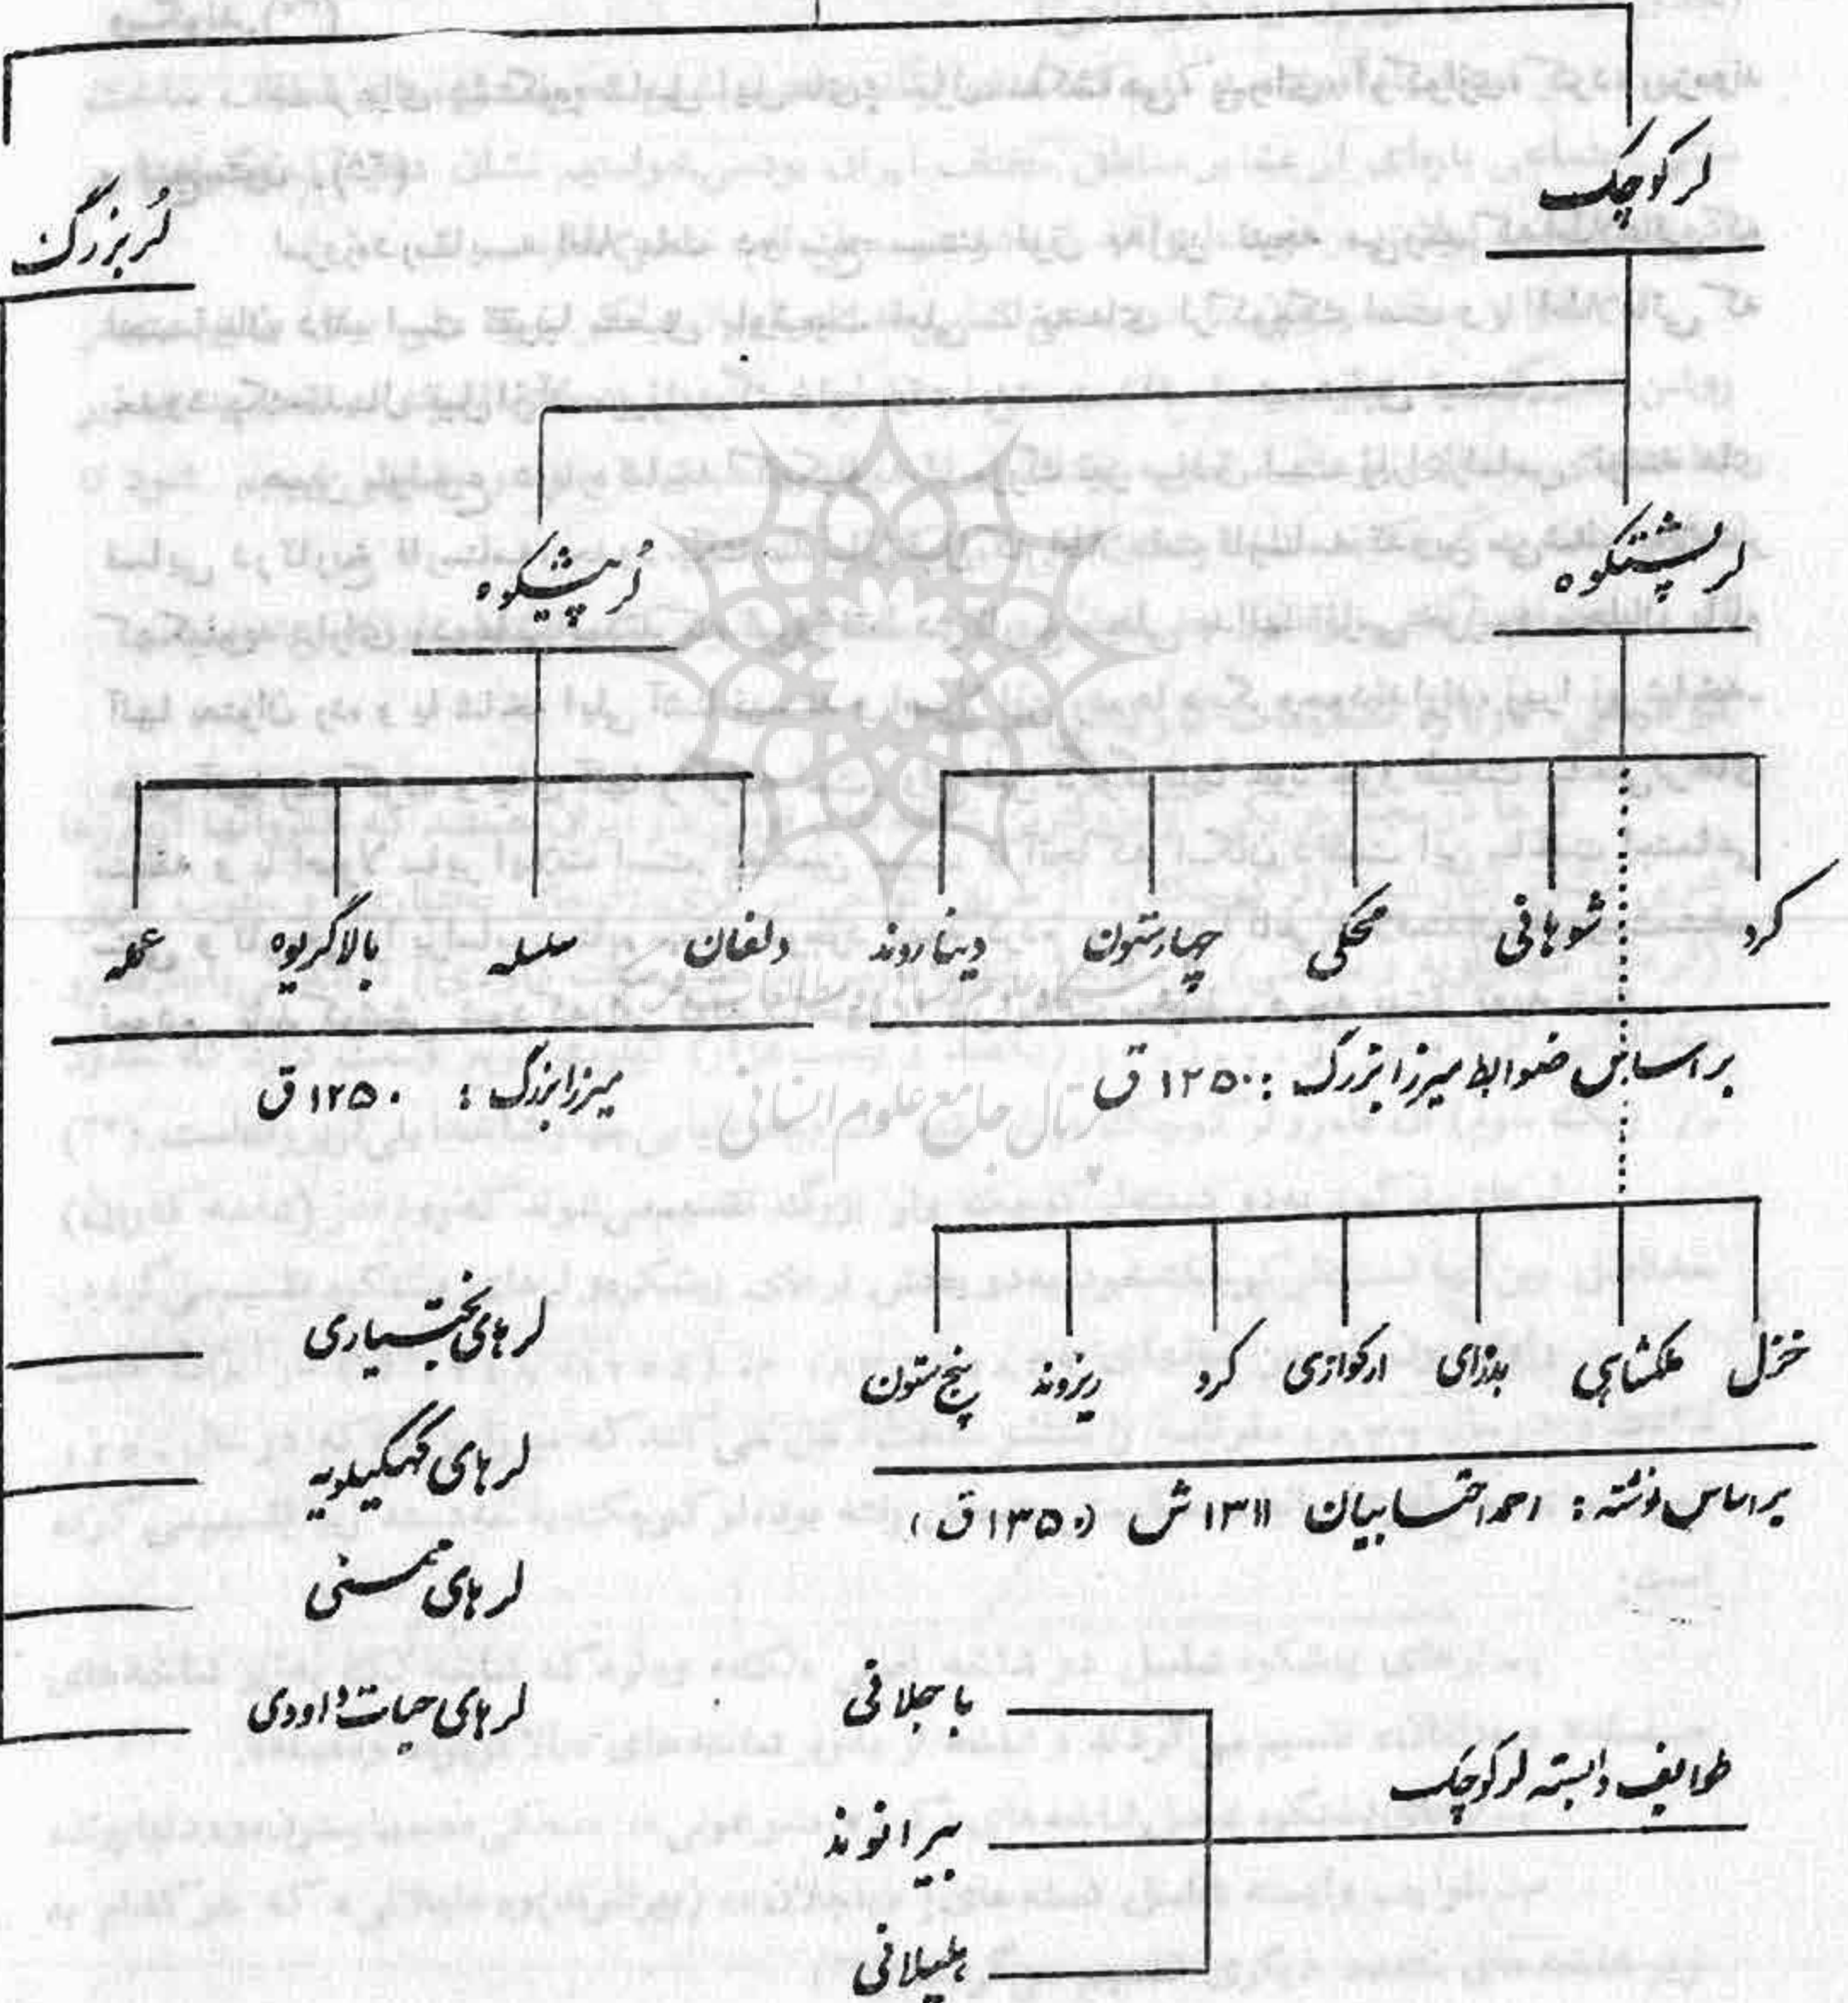 لر کوچک
لُر بزرگ
لر پشتکوه
لُر پیشکوه
کرد
شوهانی
محکی
چهارستون
دیناروند
دلفان
سلسله
بالاگریوه
عمله
براساس ضوابط میرزا بزرگ : ۱۲۵۰ ق
میرزا بزرگ : ۱۲۵۰ ق
پرتال جامع علوم انسانی
خزل
ملکشاهی
بدرای
ارکوازی
کرد
ریزوند
پنج ستون
براساس نوشته : احمد احتسابیان ۱۳۱۱ ش (۱۳۵۰ ق)
لرهای بختیاری
لرهای کهگیلویه
لرهای ممسنی
لرهای حیات داودی
طوایف وابسته لر کوچک
باجلانی
بیرانوند
هلیلانی